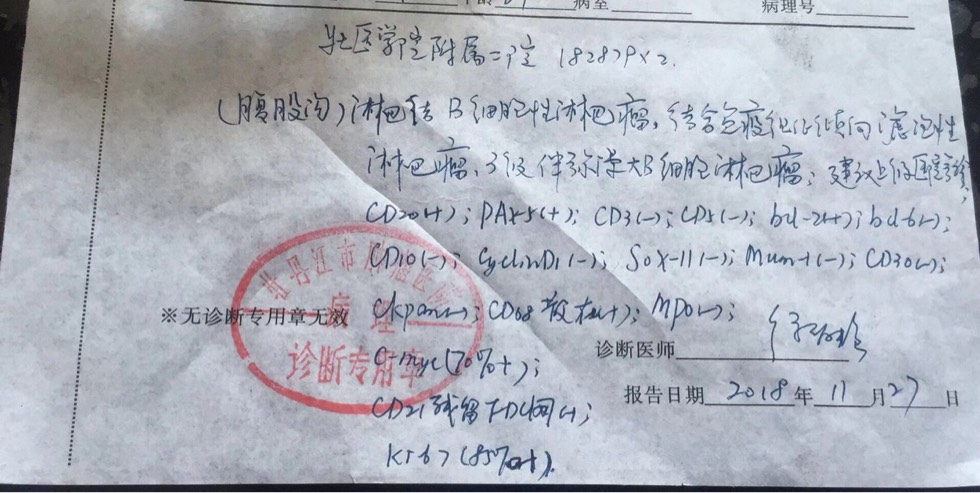 病室 病理号
牡医学院附属二院 182879×2.
(腹股沟)淋巴结B细胞性淋巴瘤,结合免疫组化倾向滤泡性
淋巴瘤,3级伴弥漫大B细胞淋巴瘤;建议上级医院会诊,
CD20(+); PAX-5(+); CD3(-); CD5(-); bcl-2(+); bcl-6(-);
CD10(-); CyclinD1(-); Sox-11(-); Mum-1(-); CD30(-);
Ckpan(-); CD68散在(+); MPO(-);
C-myc(70%+);
CD21残留FDC网(+);
Ki67(85%+).
※无诊断专用章无效
牡丹江市肿瘤医院
病理
诊断专用章
诊断医师
报告日期 2018年11月27日